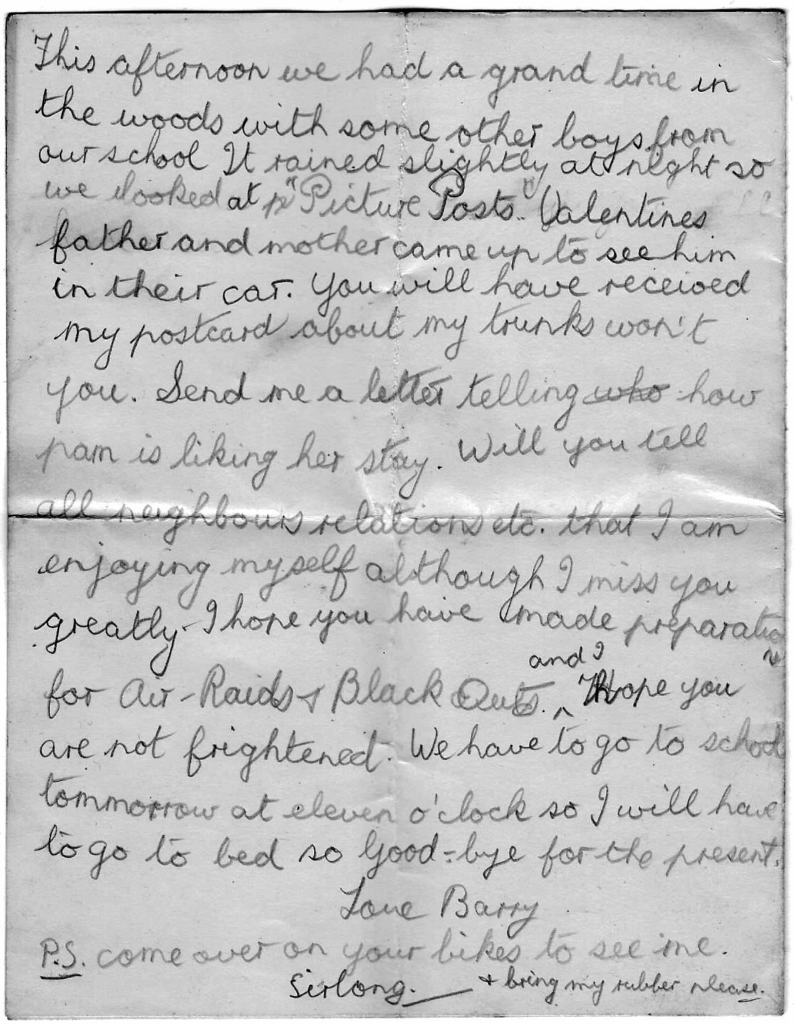 This afternoon we had a grand time in
the woods with some other boys from
our school It rained slightly at night so
we looked at "Picture Posts". Valentines
father and mother came up to see him
in their car. You will have received
my postcard about my trunks won't
you. Send me a letter telling who how
pam is liking her stay. Will you tell
all neighbours relations etc. that I am
enjoying myself although I miss you
greatly. I hope you have made preparation
for Air-Raids & Black Outs. and I hope you
are not frightened. We have to go to school
tommorrow at eleven o'clock so I will have
to go to bed so Good-bye for the present.
Love Barry
P.S. come over on your bikes to see me.
+ bring my rubber please.